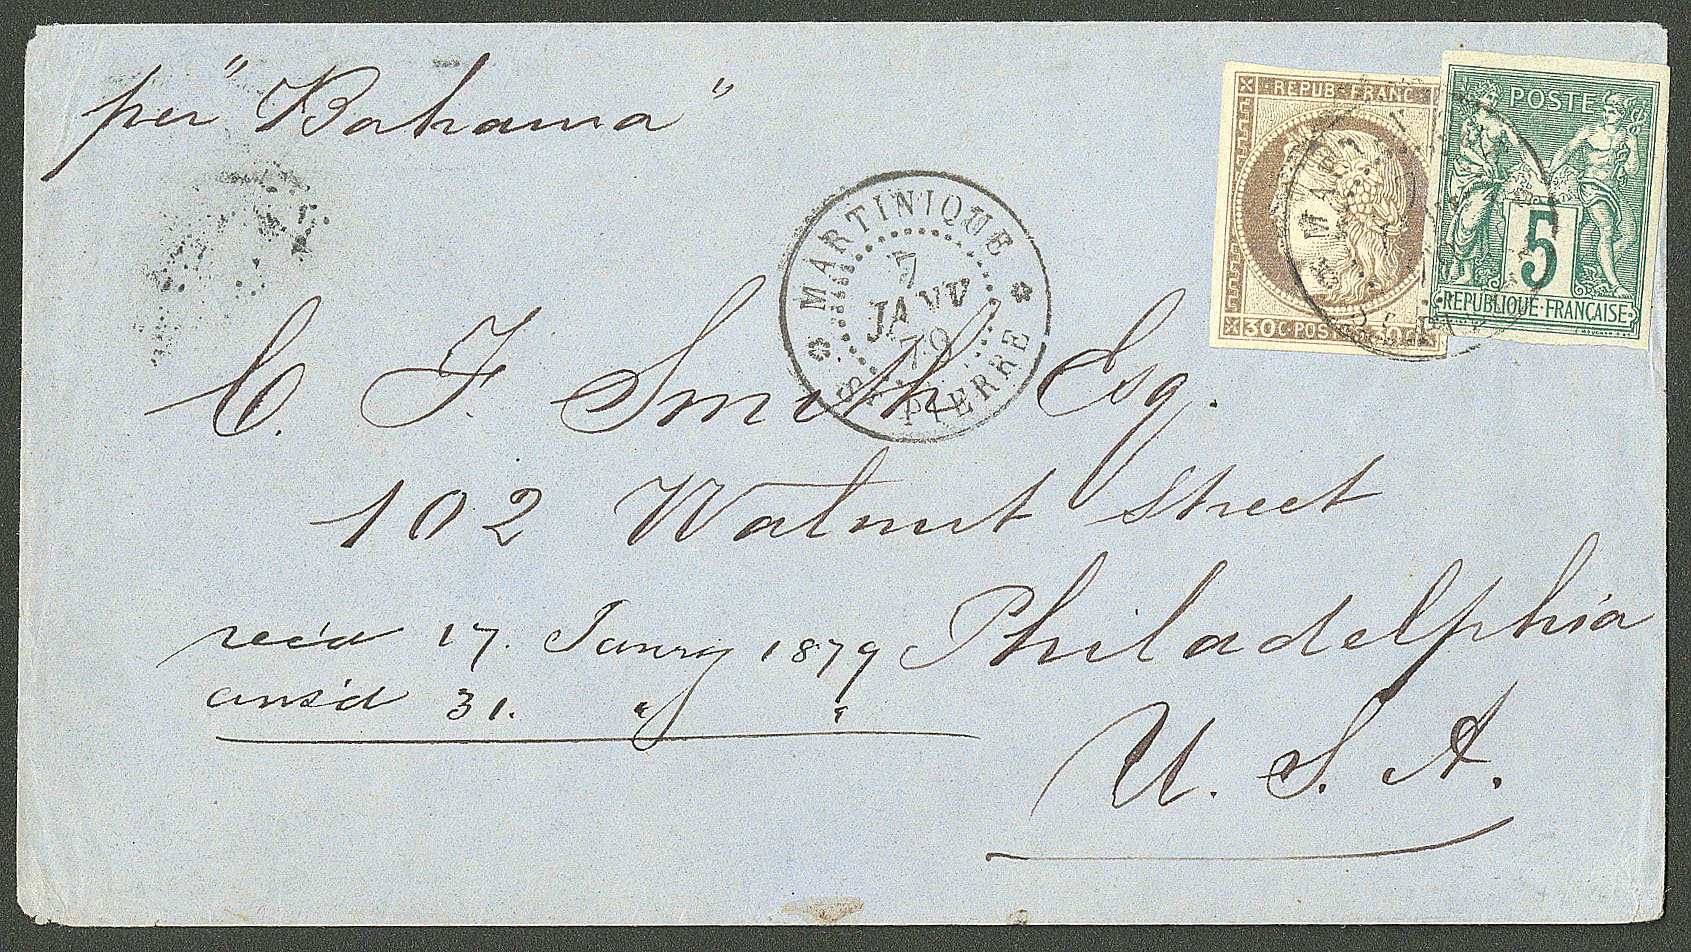 per "Bahama"
REPUB. FRANC.
30 C. POSTES 30 C.
POSTE
5
REPUBLIQUE FRANÇAISE
MARTINIQUE
7
JANV
79
ST PIERRE
C. F. Smith Esq.
102 Walnut Street
Philadelphia
U. S. A.
rec'd 17. Janry 1879
ans'd 31. " "